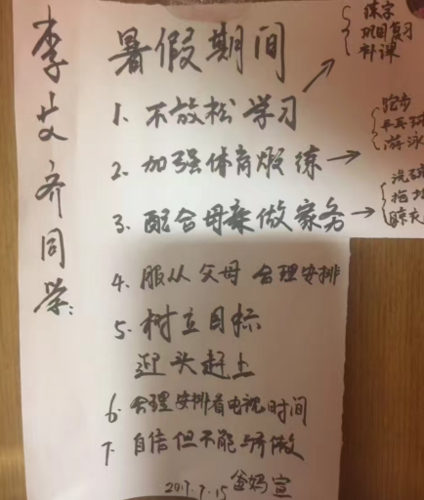 李艾齐同学:
暑假期间
1. 不放松学习
练字
巩固复习
补课
2. 加强体育煅练
跑步
乒乓球
游泳
3. 配合母亲做家务
洗碗
拖地
晾衣
4. 服从父母 合理安排
5. 树立目标
迎头赶上
6. 合理安排看电视时间
7. 自信但不能骄傲
2017.7.15 爸妈宣